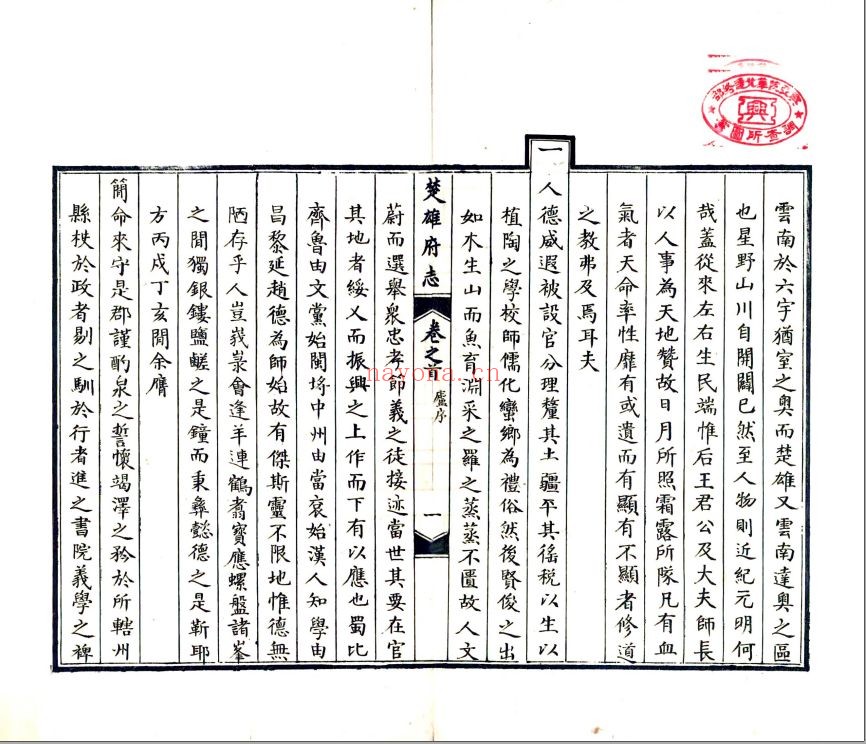 雲南於六宇猶室之奧而楚雄又雲南達奧之區
也星野山川自開闢已然至人物則近紀元明何
哉蓋從來左右生民端惟后王君公及大夫師長
以人事為天地贊故日月所照霜露所隊凡有血
氣者天命率性靡有或遺而有顯有不顯者修道
之教弗及焉耳夫
一人德威遐被設官分理釐其土疆平其徭税以生以
植陶之學校師儒化蠻鄉為禮俗然後賢俊之出
如木生山而魚育淵采之羅之蒸蒸不匱故人文
楚雄府志 卷之首 廬序 一
蔚而選舉衆忠孝節義之徒接迹當世其要在官
其地者綏乂而振興之上作而下有以應也蜀比
齊魯由文黨始閩埓中州由當衮始漢人知學由
昌黎延趙德為師始故有傑斯靈不限地惟德無
陋存乎人豈峩𡶴會逢羊連鶴翥寶應螺盤諸峯
之間獨銀鏤鹽鹺之是鐘而秉彝懿德之是靳耶
方丙戌丁亥間余膺
簡命來守是郡謹酌泉之誓懷竭澤之矜於所轄州
縣杕於政者剔之馴於行者進之書院義學之裨
調查所圖書
nayona.cn